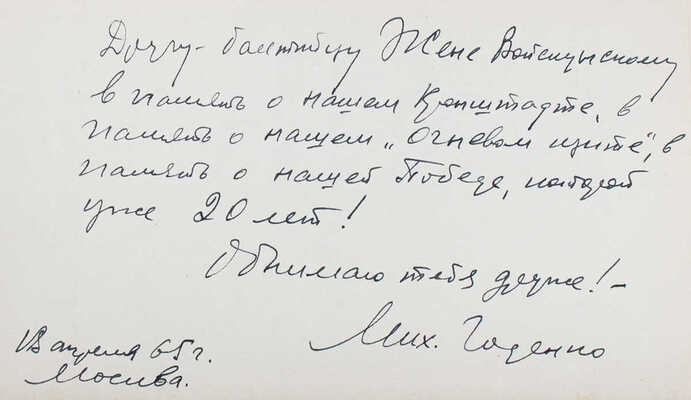 Другу - балтийцу Жене Войскунскому
в память о нашем Кронштадте, в
память о нашем „Огневом щите", в
память о нашей Победе, которой
уже 20 лет!
Обнимаю тебя друже! -
Мих. Годенко
18 апреля 65 г.
Москва.